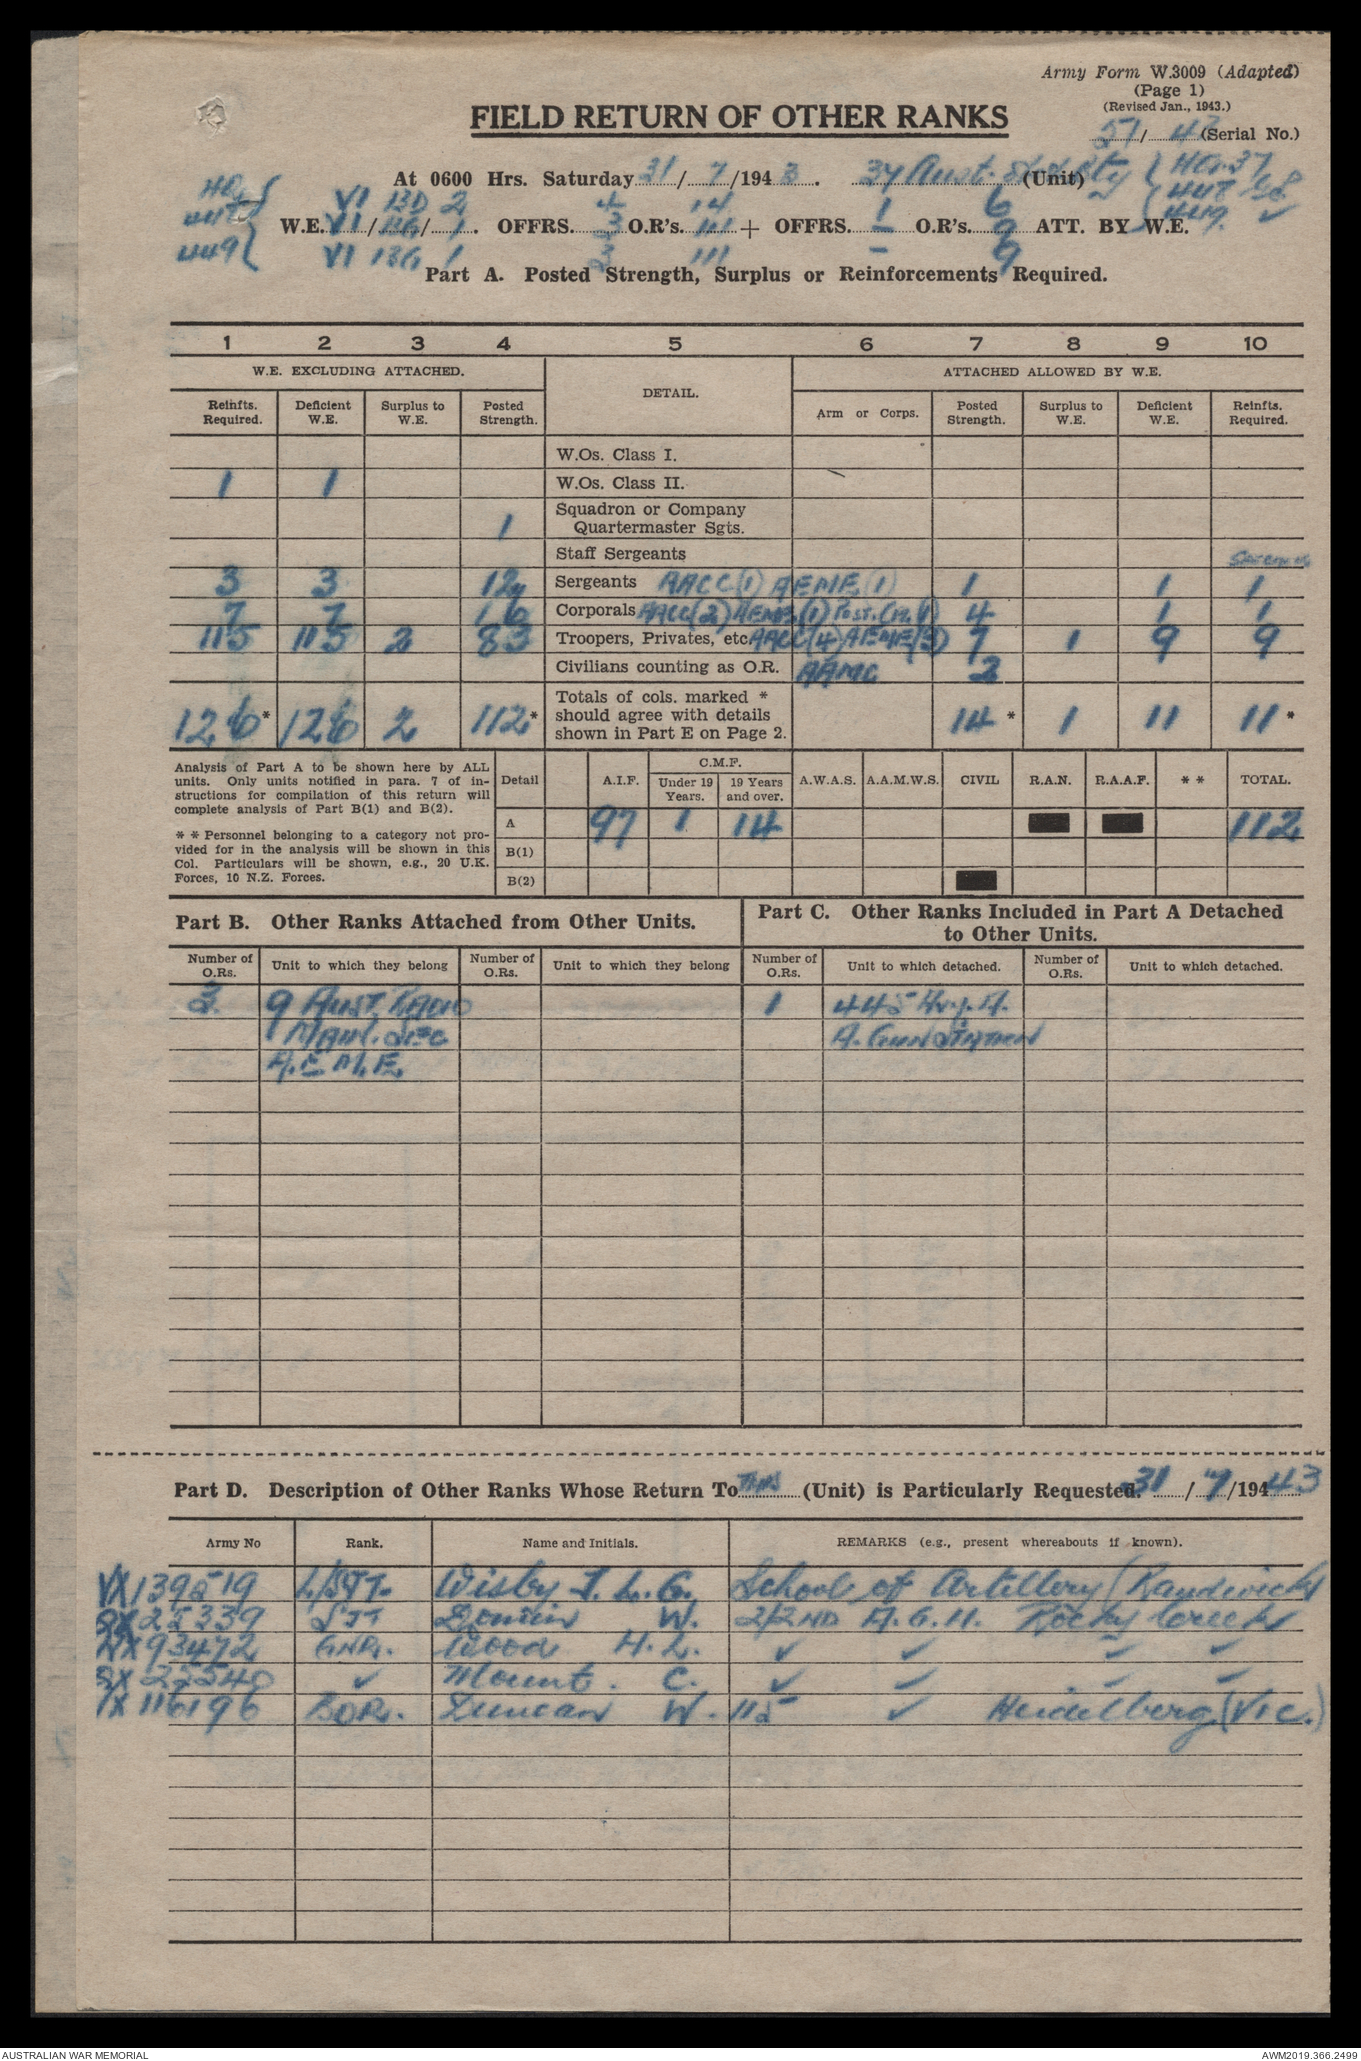 Army Form W.3009 (Adapted)
(Page 1)
(Revised Jan., 1943.)
FIELD RETURN OF OTHER RANKS
51/43 (Serial No.)
At 0600 Hrs. Saturday 31/7/1943. 37 Aust. Bty (Unit)
HQ. 37
447
449
HQ VI 13D 2 4 14 1 6
W.E. VI/13G/1. OFFRS. 3 O.R's. 111 + OFFRS. – O.R's. 9 ATT. BY W.E.
449 VI 13G 1 3 111 – 9
Part A. Posted Strength, Surplus or Reinforcements Required.
1 2 3 4 5 6 7 8 9 10
W.E. EXCLUDING ATTACHED. DETAIL. ATTACHED ALLOWED BY W.E.
Reinfts. Required. Deficient W.E. Surplus to W.E. Posted Strength. Arm or Corps. Posted Strength. Surplus to W.E. Deficient W.E. Reinfts. Required.
W.Os. Class I.
1 1 W.Os. Class II.
1 Squadron or Company
Quartermaster Sgts.
Staff Sergeants
3 3 12 Sergeants AACC (1) AEME (1) 1 1 1
7 7 16 Corporals AACC (2) AEME (1) Post. (1) 4 1 1
115 115 2 83 Troopers, Privates, etc. AACC (4) AEME (3) 7 1 9 9
Civilians counting as O.R. AAMC 2
126* 126 2 112* Totals of cols. marked *
should agree with details
shown in Part E on Page 2. 14* 1 11 11*
Analysis of Part A to be shown here by ALL
units. Only units notified in para. 7 of in-
structions for compilation of this return will
complete analysis of Part B(1) and B(2).
* * Personnel belonging to a category not pro-
vided for in the analysis will be shown in this
Col. Particulars will be shown, e.g., 20 U.K.
Forces, 10 N.Z. Forces.
Detail A.I.F. C.M.F. Under 19 Years. 19 Years and over. A.W.A.S. A.A.M.W.S. CIVIL R.A.N. R.A.A.F. * * TOTAL.
A 97 1 14 112
B(1)
B(2)
Part B. Other Ranks Attached from Other Units.
Part C. Other Ranks Included in Part A Detached
to Other Units.
Number of O.Rs. Unit to which they belong Number of O.Rs. Unit to which they belong Number of O.Rs. Unit to which detached. Number of O.Rs. Unit to which detached.
3 9 Aust. Radio 1 445 Hvy. A.
Main. Sec A. Gun Station
A.E.M.E.
Part D. Description of Other Ranks Whose Return To This (Unit) is Particularly Requested. 31/7/1943
Army No Rank. Name and Initials. REMARKS (e.g., present whereabouts if known).
VX139519 L/SJT. Wisby T. L. G. School of Artillery (Randwick)
SX25339 SJT W. 2/2ND A.G.H. Rocky Creek
NX93472 GNR. Wood H. L. ✓ ✓ ✓ ✓
SX25540 ✓ Mount. C. ✓ ✓ ✓ ✓
116196 BDR. Duncan W. 115 ✓ Heidelberg (Vic.)
AUSTRALIAN WAR MEMORIAL
AWM2019.366.2499